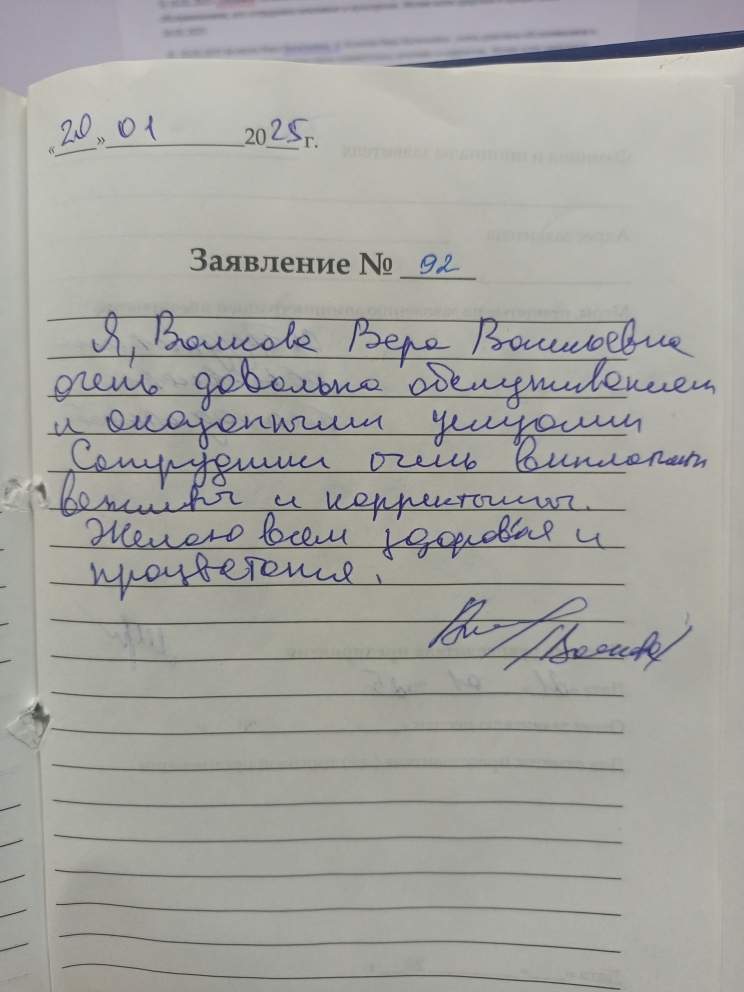 «20» 01 2025 г.
Заявление № 92
Я, Волкова Вера Васильевна
очень довольна обслуживанием
и оказанными услугами
Сотрудники очень внимательны
вежливы и корректны.
Желаю всем здоровья и
процветания.
/Волкова/